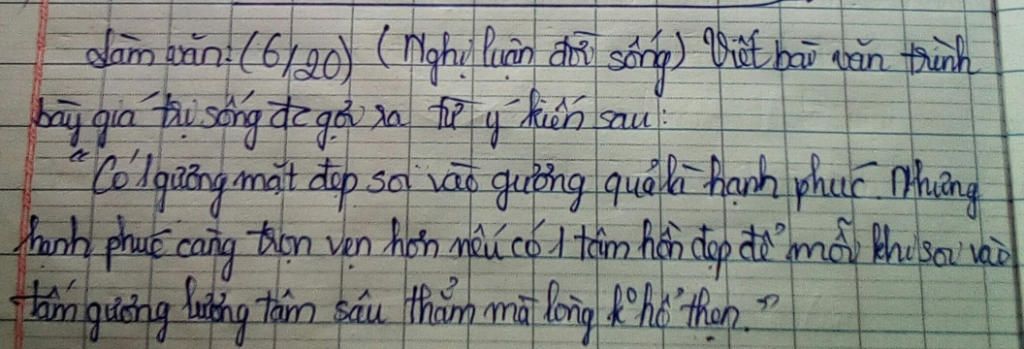 Làm văn: (6/20) (Nghị luận đời sống) Viết bài văn trình
bày giá trị sống đc gợi ra từ ý kiến sau:
"Có 1 gương mặt đẹp soi vào gương quả là hạnh phúc. Nhưng
hạnh phúc càng trọn vẹn hơn nếu có 1 tâm hồn đẹp để mỗi khi soi vào
tấm gương lương tâm sâu thẳm mà lòng ko hổ thẹn."